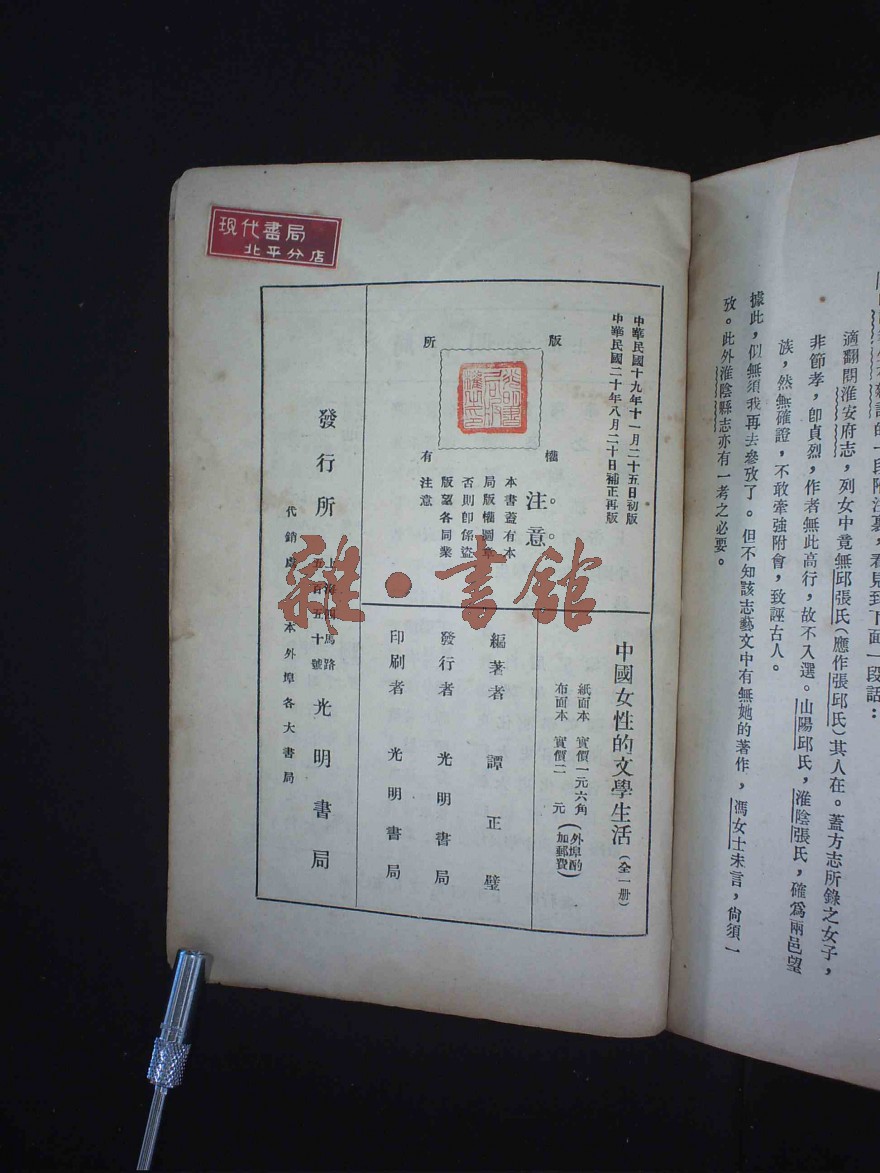 適翻閱淮安府志，列女中竟無邱張氏（應作張邱氏）其人在。蓋方志所錄之女子，
非節孝，卽貞烈，作者無此高行，故不入選。山陽邱氏，淮陰張氏，確爲兩邑望
族，然無確證，不敢牽強附會，致誣古人。
據此，似無須我再去參攷了。但不知該志藝文中有無她的著作，馮女士未言，尙須一
攷。此外淮陰縣志亦有一考之必要。
現代書局
北平分店
中華民國十九年十一月二十五日初版
中華民國二十年八月二十日補正再版
版權
所有
注意。。
本書蓋有本
局版權圖章
否則卽係盜
版望各同業
注意
中國女性的文學生活（全一册）
紙面本 實價一元六角
布面本 實價二元
（外埠酌加郵費）
編著者 譚正璧
發行者 光明書局
印刷者 光明書局
發行所
上海 馬路
五百五十號
光明書局
代銷處 本外埠各大書局
雜·書館